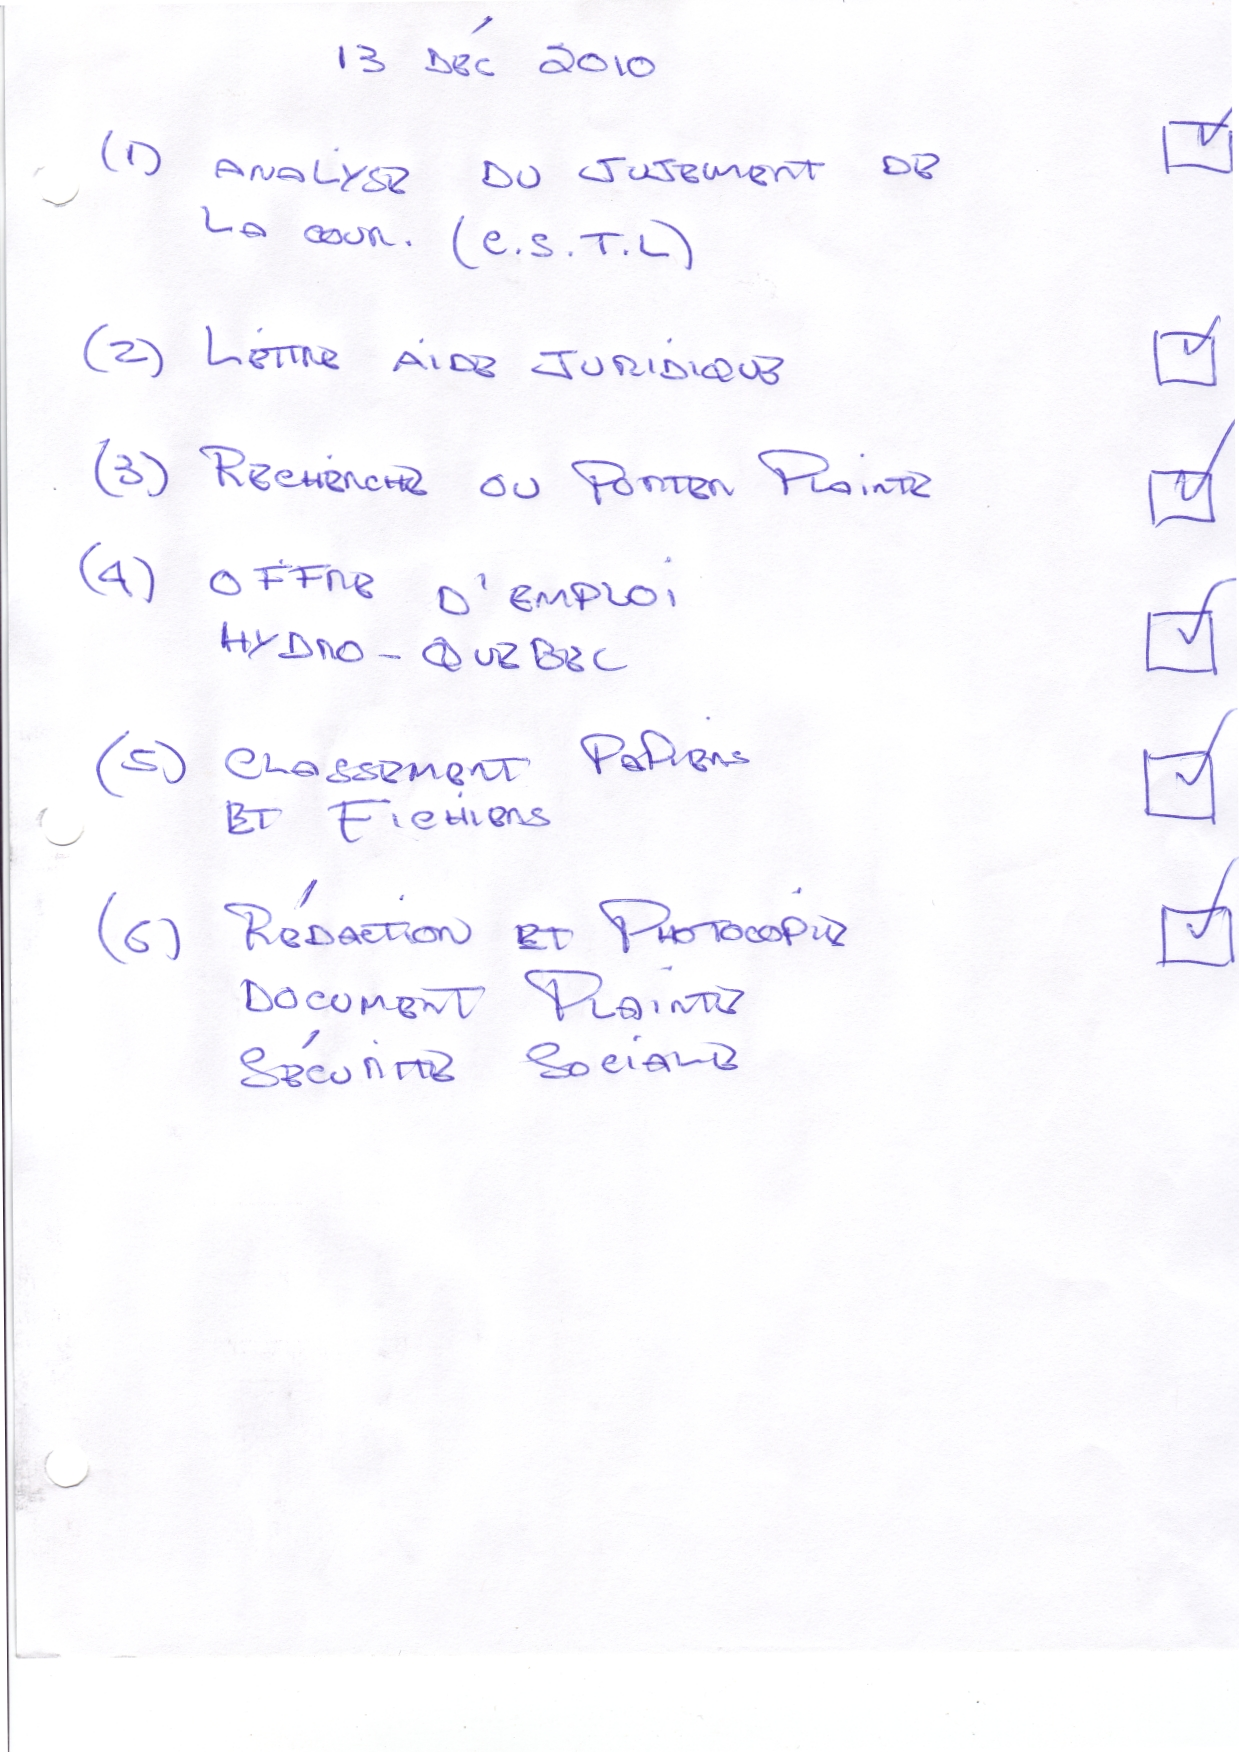 13 DÉC 2010
(1) ANALYSE DU JUJEMENT DE
LA COUR. (C.S.T.L)
(2) LETTRE AIDE JURIDIQUE
(3) RECHERCHE OU PORTER PLAINTE
(4) OFFRE D'EMPLOI
HYDRO-QUEBEC
(5) CLASSEMENT PAPIERS
ET FICHIERS
(6) RÉDACTION ET PHOTOCOPIE
DOCUMENT PLAINTE
SÉCURITE SOCIALE